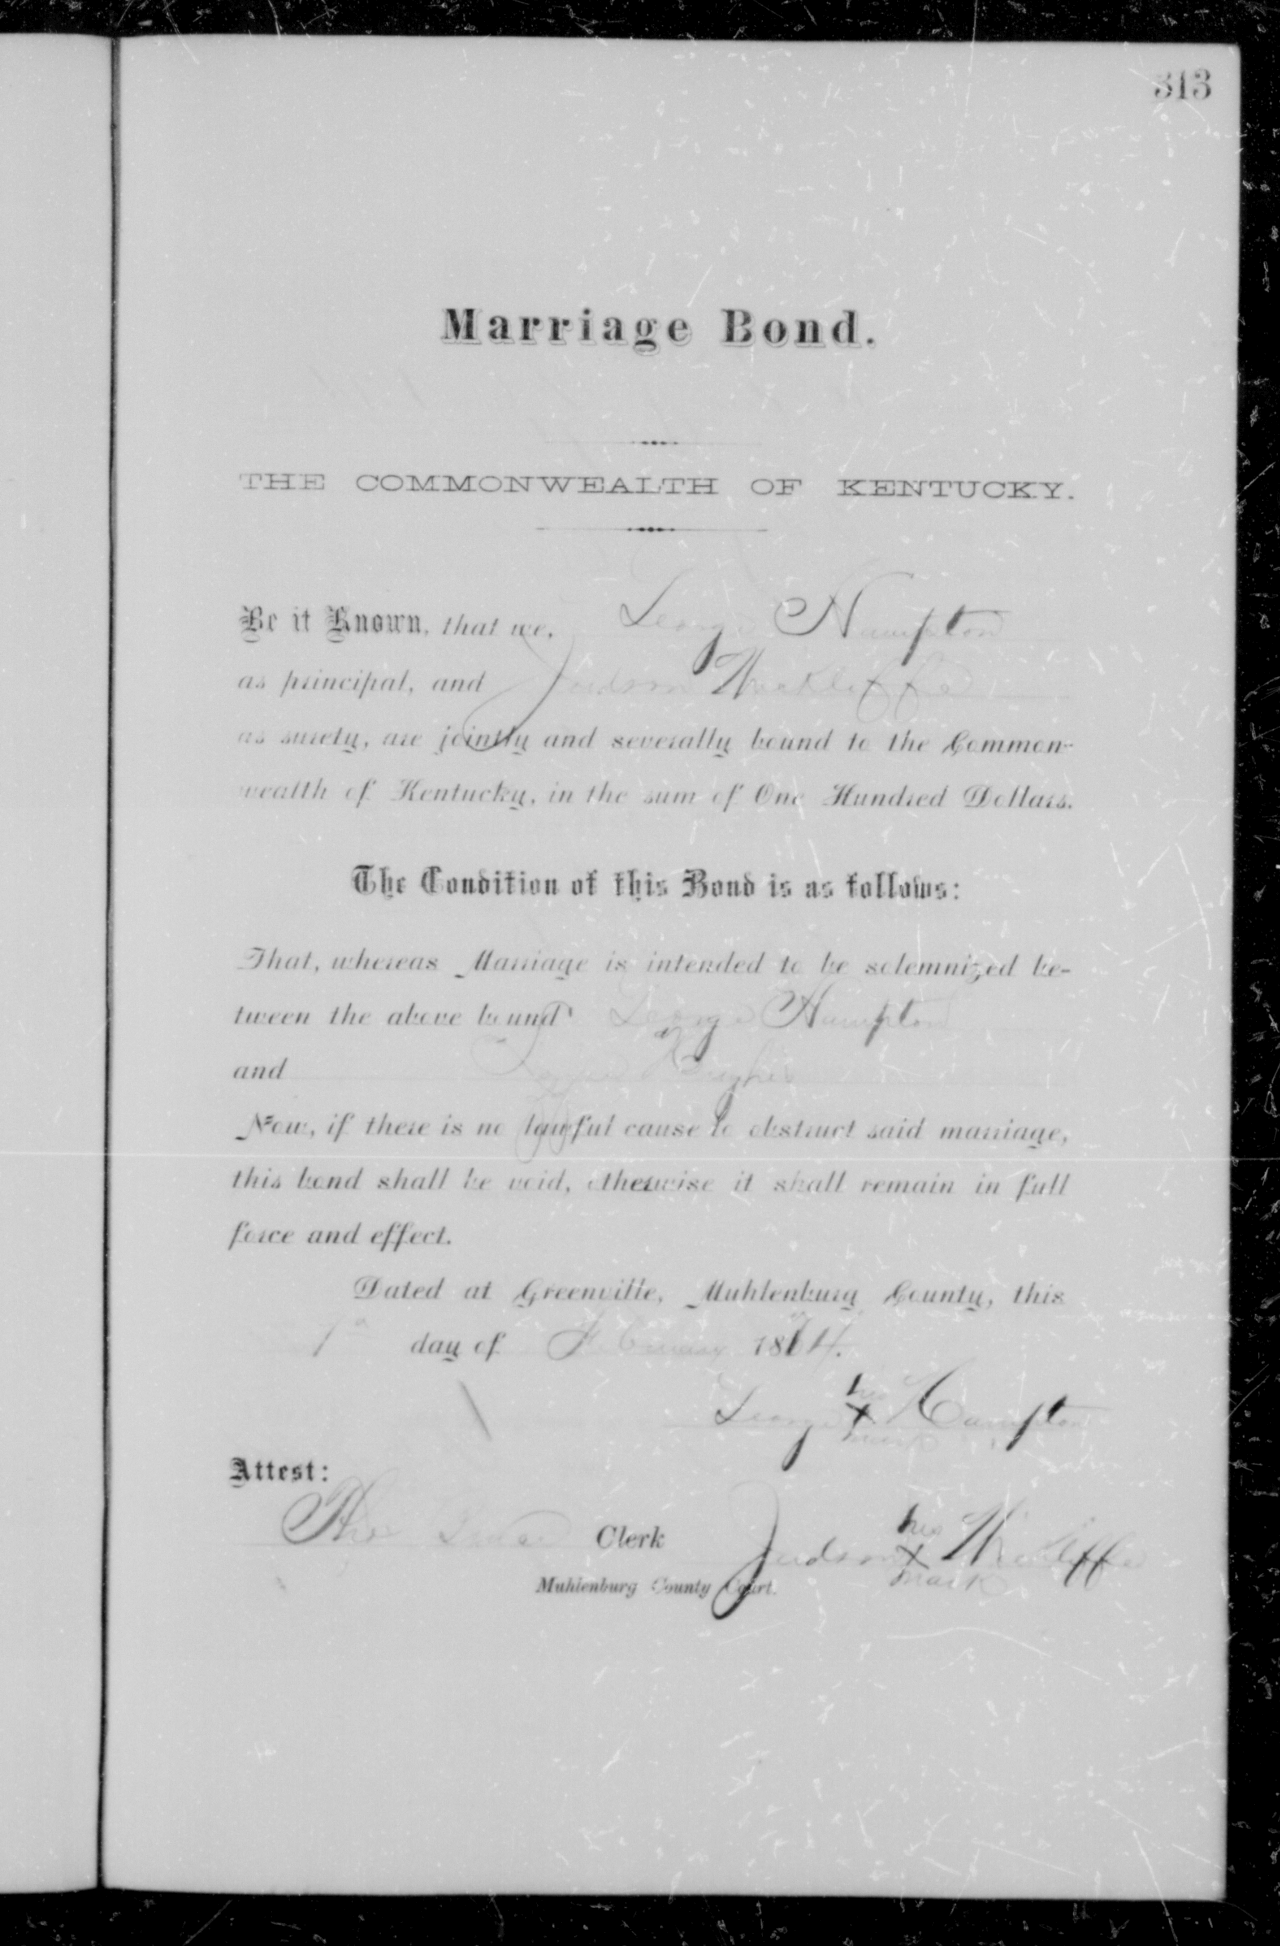 313
Marriage Bond.
THE COMMONWEALTH OF KENTUCKY.
Be it Known, that we, George Hampton
as principal, and Judson Wickliffe
as surety, are jointly and severally bound to the Common-
wealth of Kentucky, in the sum of One Hundred Dollars.
The Condition of this Bond is as follows:
That, whereas Marriage is intended to be solemnized be-
tween the above bound George Hampton
and Hughes
Now, if there is no lawful cause to obstruct said marriage,
this bond shall be void, otherwise it shall remain in full
force and effect.
Dated at Greenville, Muhlenburg County, this
day of February 18
his
George X Hampton
mark
Attest:
his
Tho Clerk Judson X Wickliffe
mark
Muhlenburg County Court.